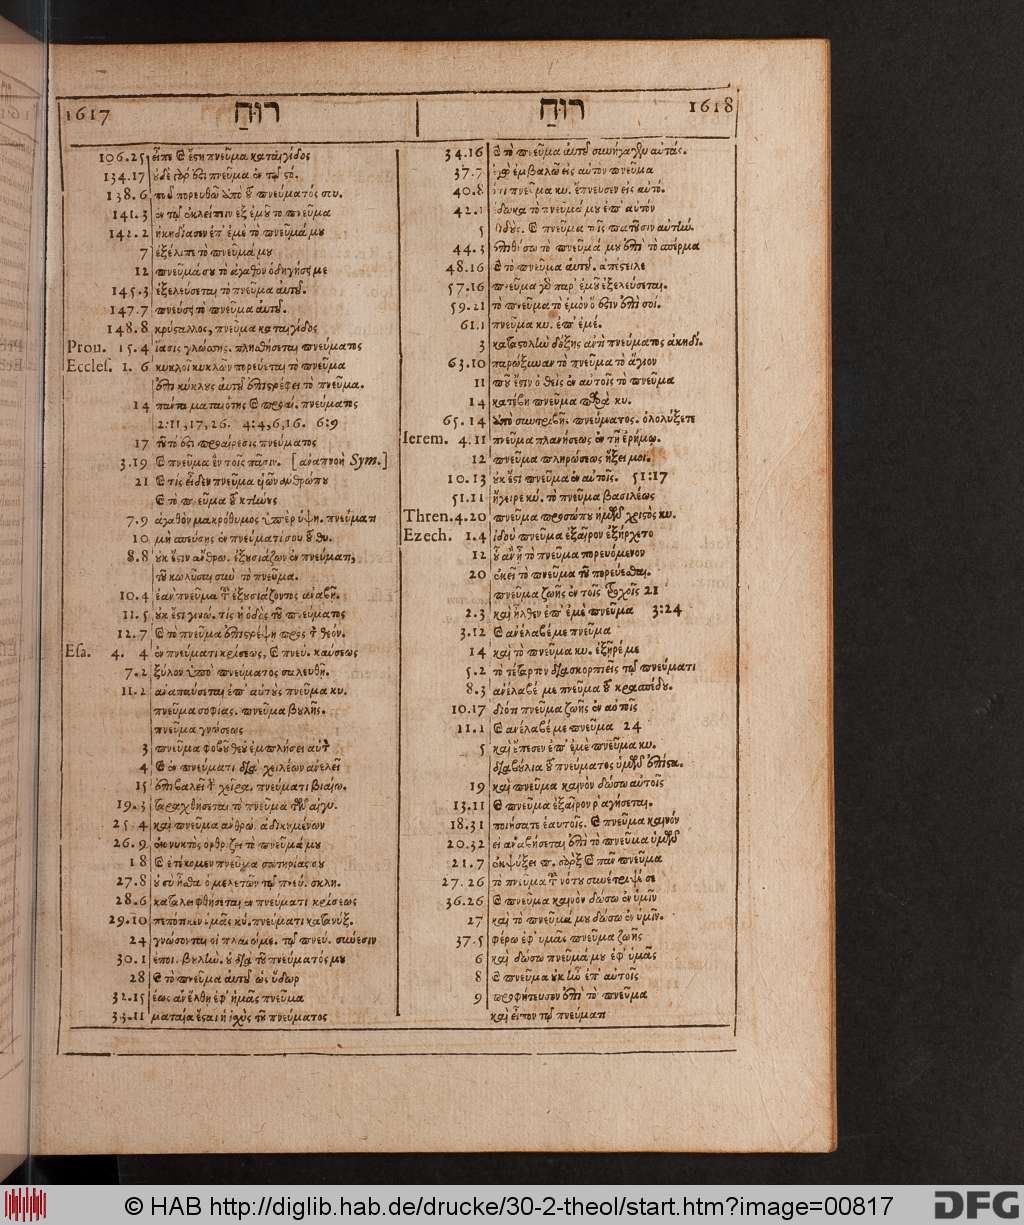 1617 רוּחַ
106.25 εἶπε καὶ ἔστη πνεῦμα καταιγίδος
134.17 οὐδὲ γάρ ἐστι πνεῦμα ἐν τῷ στό.
138.6 ποῦ πορευθῶ ἀπὸ τοῦ πνεύματός σου.
141.3 ἐν τῷ ἐκλείπειν ἐξ ἐμοῦ τὸ πνεῦμα
142.2 ἠκηδίασεν ἐπ' ἐμὲ τὸ πνεῦμά μου
7 ἐξέλιπε τὸ πνεῦμά μου
12 πνεῦμά σου τὸ ἀγαθὸν ὁδηγήσει με
145.3 ἐξελεύσεται τὸ πνεῦμα αὐτοῦ.
147.7 πνεύσει τὸ πνεῦμα αὐτοῦ.
148.8 κρύσταλλος, πνεῦμα καταιγίδος
Prou. 15.4 ἴασις γλώσσης. πλησθήσεται πνεύματος
Eccles. 1.6 κυκλοῖ κυκλῶν πορεύεται τὸ πνεῦμα
ἐπὶ κύκλους αὐτοῦ ἐπιστρέφει τὸ πνεῦμα.
14 πάντα ματαιότης καὶ προαί. πνεύματος
2:11,17,26. 4:4,6,16. 6:9
17 τοῦτό ἐστι προαίρεσις πνεύματος
3.19 καὶ πνεῦμα ἓν τοῖς πᾶσιν. [ἀναπνοὴ Sym.]
21 καὶ τίς εἶδεν πνεῦμα υἱῶν ἀνθρώπου
καὶ τὸ πνεῦμα τοῦ κτήνους
7.9 ἀγαθὸν μακρόθυμος ὑπὲρ ὑψη. πνεύματι
10 μὴ σπεύσῃς ἐν πνεύματί σου τοῦ θυ.
8.8 οὐκ ἔστιν ἄνθρω. ἐξουσιάζων ἐν πνεύματι,
τοῦ κωλῦσαι σὺν τὸ πνεῦμα.
10.4 ἐὰν πνεῦμα τοῦ ἐξουσιάζοντος ἀναβῇ.
11.5 οὐκ ἔστι γινώ. τίς ἡ ὁδὸς τοῦ πνεύματος
12.7 καὶ τὸ πνεῦμα ἐπιστρέψῃ πρὸς τὸν θεόν.
Esa. 4.4 ἐν πνεύματι κρίσεως, καὶ πνεύ. καύσεως
7.2 ξύλον ὑπὸ πνεύματος σαλευθῇ.
11.2 ἀναπαύσεται ἐπ' αὐτὸν πνεῦμα κυ.
πνεῦμα σοφίας. πνεῦμα βουλῆς.
πνεῦμα γνώσεως
3 πνεῦμα φόβου θεοῦ ἐμπλήσει αὐτὸν
4 καὶ ἐν πνεύματι διὰ χειλέων ἀνελεῖ
15 ἐπιβαλεῖ τὴν χεῖρα. πνεύματι βιαίῳ.
19.3 ταραχθήσεται τὸ πνεῦμα τῶν αἰγυ.
25.4 καὶ πνεῦμα ἀνθρώ. ἀδικουμένων
26.9 ἐκ νυκτὸς ὀρθρίζει τὸ πνεῦμά μου
18 καὶ ἐτέκομεν πνεῦμα σωτηρίας σου
27.8 οὐ σὺ ἦσθα ὁ μελετῶν τῷ πνεύ. σκλη.
28.6 καταλειφθήσεται ἐν πνεύματι κρίσεως
29.10 πεπότικεν ὑμᾶς κύ. πνεύματι κατανύξ.
24 γνώσονται οἱ πλανώμε. τῷ πνεύ. σύνεσιν
30.1 ἐποι. βουλὴν. οὐ διὰ τοῦ πνεύματός μου
28 καὶ τὸ πνεῦμα αὐτοῦ ὡς ὕδωρ
32.15 ἕως ἂν ἔλθῃ ἐφ' ἡμᾶς πνεῦμα
33.11 ματαία ἔσται ἡ ἰσχὺς τοῦ πνεύματος
רוּחַ 1618
34.16 καὶ τὸ πνεῦμα αὐτοῦ συνήγαγεν αὐτάς.
37.7 ἐγὼ ἐμβαλῶ εἰς αὐτὸν πνεῦμα
40.8 ὅτι πνεῦμα κυ. ἔπνευσεν εἰς αὐτό.
42.1 ἔδωκα τὸ πνεῦμά μου ἐπ' αὐτόν
5 διδοὺς. καὶ πνεῦμα τοῖς πατοῦσιν αὐτήν.
44.3 ἐπιθήσω τὸ πνεῦμά μου ἐπὶ τὸ σπέρμα
48.16 καὶ τὸ πνεῦμα αὐτοῦ. ἀπέστειλε
57.16 πνεῦμα γὰρ παρ' ἐμοῦ ἐξελεύσεται.
59.21 τὸ πνεῦμα τὸ ἐμὸν ὅ ἐστιν ἐπὶ σοί.
61.1 πνεῦμα κυ. ἐπ' ἐμέ.
3 καταστολὴν δόξης ἀντὶ πνεύματος ἀκηδί.
63.10 παρώξυναν τὸ πνεῦμα τὸ ἅγιον
11 ποῦ ἐστιν ὁ θεὶς ἐν αὐτοῖς τὸ πνεῦμα
14 κατέβη πνεῦμα παρὰ κυ.
65.14 ἀπὸ συντριβῆς πνεύματος. ὀλολύξετε
Ierem. 4.11 πνεῦμα πλανήσεως ἐν τῇ ἐρήμῳ.
12 πνεῦμα πληρώσεως ἥξει μοι.
10.13 οὐκ ἔστι πνεῦμα ἐν αὐτοῖς. 51:17
51.11 ἤγειρε κύ. τὸ πνεῦμα βασιλέως
Thren. 4.20 πνεῦμα προσώπου ἡμῶν χριστὸς κυ.
Ezech. 1.4 ἰδοὺ πνεῦμα ἐξαῖρον ἐξήρχετο
12 οὗ ἂν ἦ τὸ πνεῦμα πορευόμενον
20 ἐκεῖ τὸ πνεῦμα τοῦ πορεύεσθαι.
πνεῦμα ζωῆς ἐν τοῖς τροχοῖς 21
2.3 καὶ ἦλθεν ἐπ' ἐμὲ πνεῦμα 3:24
3.12 καὶ ἀνέλαβέ με πνεῦμα
14 καὶ τὸ πνεῦμα κυ. ἐξῆρέ με
5.2 τὸ τέταρτον διασκορπιεῖς τῷ πνεύματι
8.3 ἀνέλαβέ με πνεῦμα τοῦ κρασπέδου.
10.17 διότι πνεῦμα ζωῆς ἐν αὐτοῖς
11.1 καὶ ἀνέλαβέ με πνεῦμα 24
5 καὶ ἔπεσεν ἐπ' ἐμὲ πνεῦμα κυ.
διαβούλια τοῦ πνεύματος ὑμῶν ἐπίστα.
19 καὶ πνεῦμα καινὸν δώσω αὐτοῖς
13.11 καὶ πνεῦμα ἐξαῖρον ῥαγήσεται.
18.31 ποιήσατε ἑαυτοῖς. καὶ πνεῦμα καινόν
20.32 εἰ ἀναβήσεται ἐπὶ τὸ πνεῦμα ὑμῶν
21.7 ἐκψύξει π. σὰρξ καὶ πᾶν πνεῦμα
27.26 τὸ πνεῦμα τοῦ νότου συνέτριψέ σε
36.26 καὶ πνεῦμα καινὸν δώσω ἐν ὑμῖν
27 καὶ τὸ πνεῦμά μου δώσω ἐν ὑμῖν.
37.5 φέρω ἐφ' ὑμᾶς πνεῦμα ζωῆς
6 καὶ δώσω πνεῦμά μου ἐφ' ὑμᾶς
8 καὶ πνεῦμα οὐκ ἦν ἐπ' αὐτοῖς
9 προφήτευσον ἐπὶ τὸ πνεῦμα
καὶ εἶπον τῷ πνεύματι
© HAB http://diglib.hab.de/drucke/30-2-theol/start.htm?image=00817
DFG